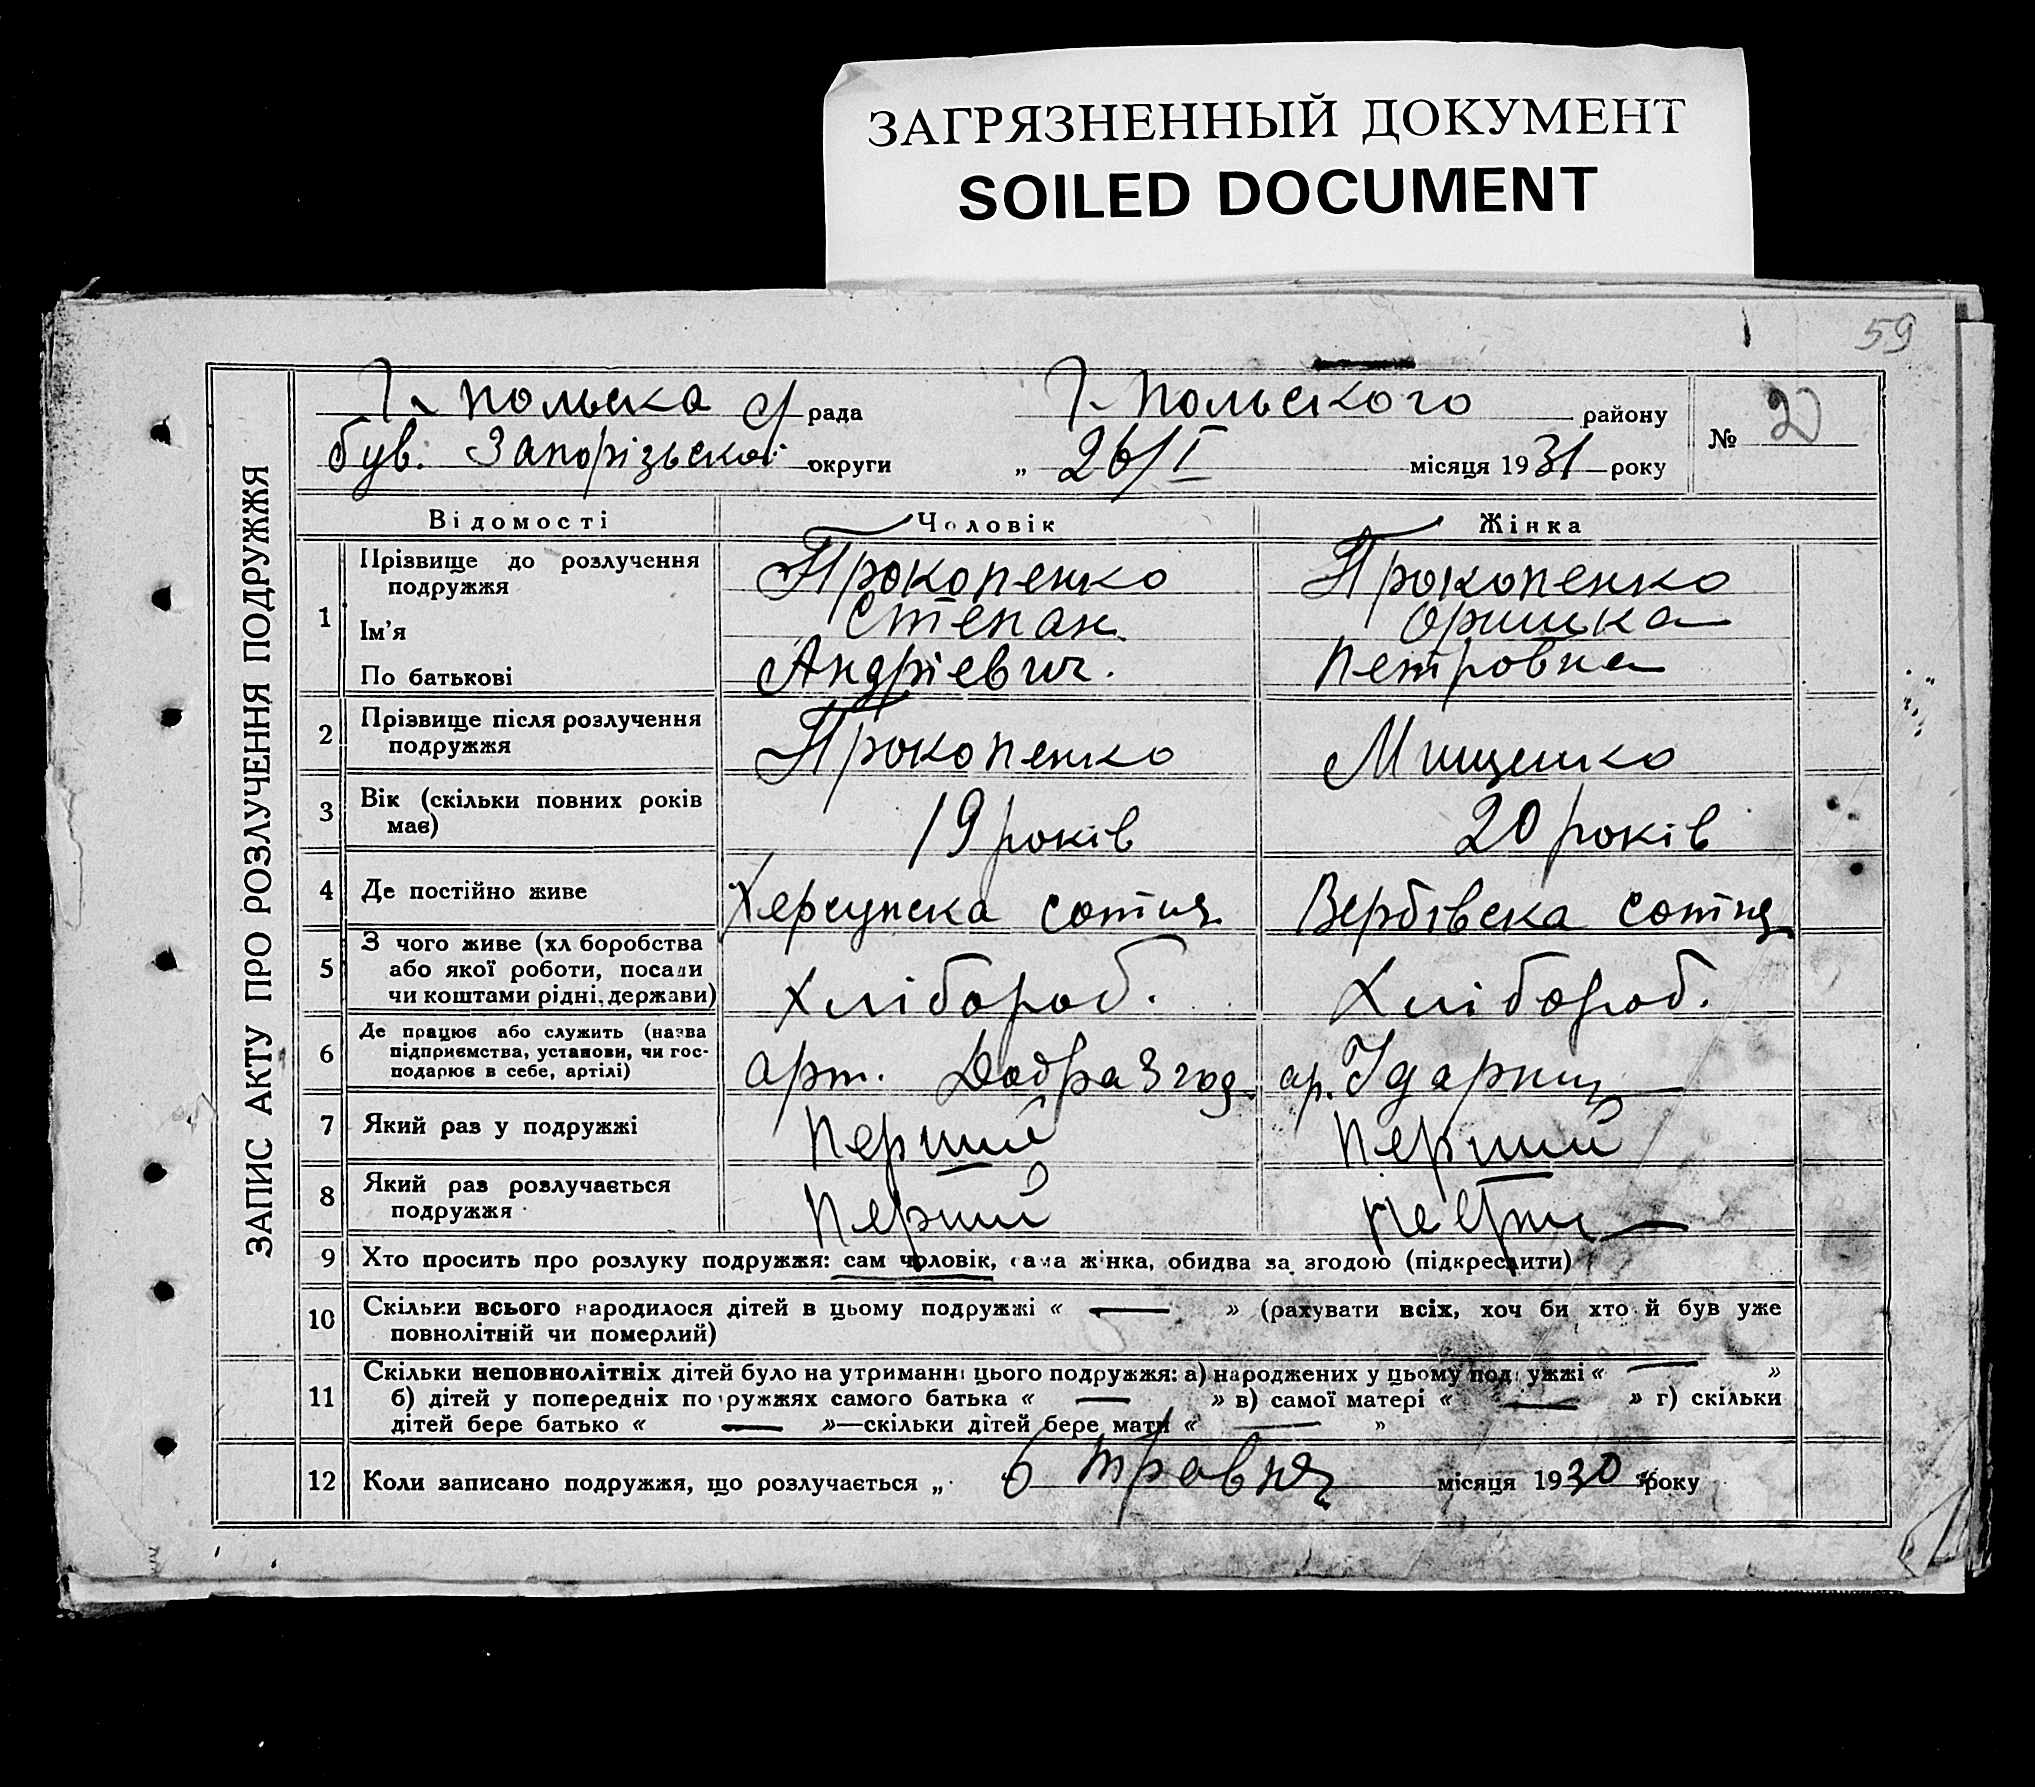 ЗАГРЯЗНЕННЫЙ ДОКУМЕНТ
SOILED DOCUMENT
59
ЗАПИС АКТУ ПРО РОЗЛУЧЕННЯ ПОДРУЖЖЯ
Г. польска с/рада Г. Польского району
№ 2
був. Запорізької округи „ 26/I місяця 1931 року
Відомості Чоловік Жінка
1 Прізвище до розлучення подружжя Прокопенко Прокопенко
Ім'я Степан Оришка
По батькові Андрієвич. Петровна
2 Прізвище після розлучення подружжя Прокопенко Мищенко
3 Вік (скільки повних років має) 19 років 20 років
4 Де постійно живе Херсунска сотня Вербівска сотня
5 З чого живе (хліборобства або якої роботи, посади чи коштами рідні, держави) Хлібороб. Хлібороб.
6 Де працює або служить (назва підприємства, установи, чи господарює в себе, артілі) арт. Добра Згод ар. Ударниц
7 Який раз у подружжі Перший Перший
8 Який раз розлучається подружжя Перший
9 Хто просить про розлуку подружжя: сам чоловік, сама жінка, обидва за згодою (підкреслити)
10 Скільки всього народилося дітей в цьому подружжі « — » (рахувати всіх, хоч би хто й був уже
повнолітній чи померлий)
11 Скільки неповнолітніх дітей було на утриманні цього подружжя: а) народжених у цьому подружжі « — »
б) дітей у попередніх подружжях самого батька « — » в) самої матері « — » г) скільки
дітей бере батько « — »—скільки дітей бере мати « — »
12 Коли записано подружжя, що розлучається „ 6 травня місяця 1930 року